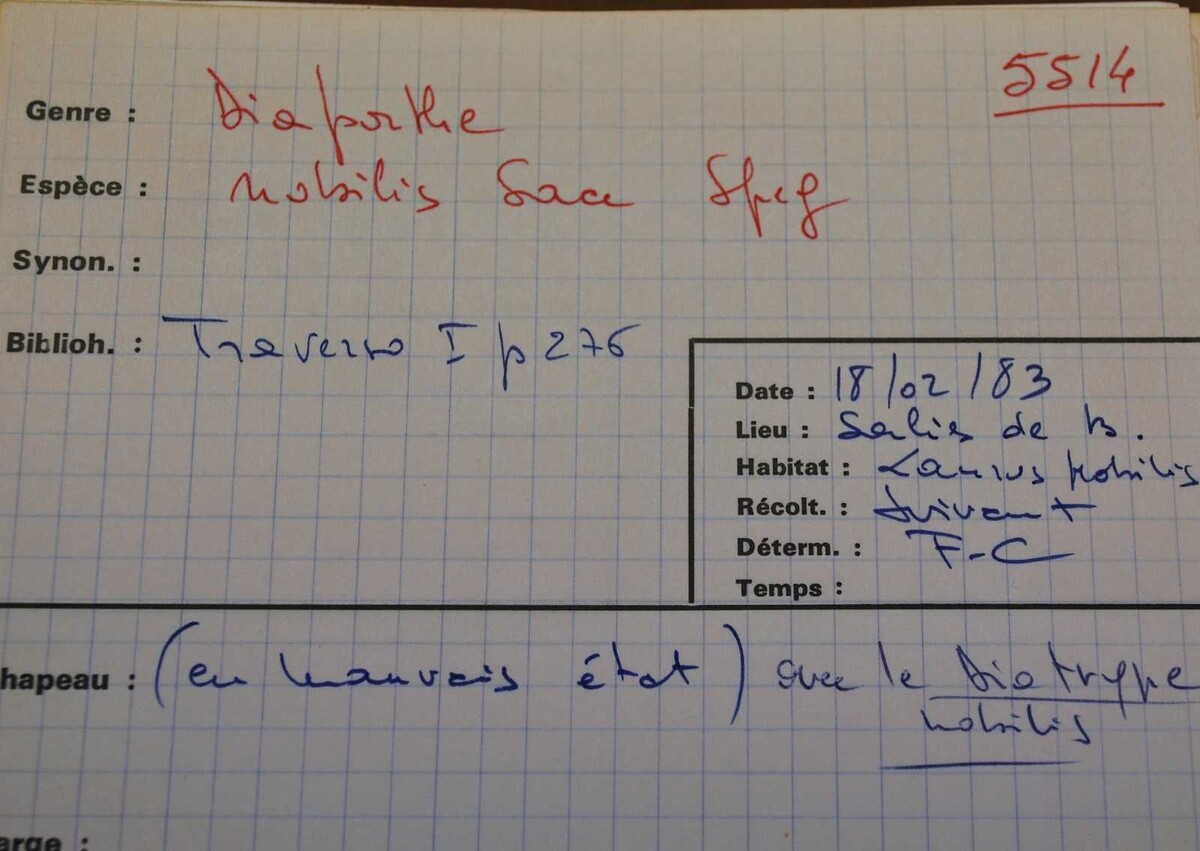 5514
Genre : Diaporthe
Espèce : nobilis Sacc Speg
Synon. :
Biblioh. : Traverso I p 276
Date : 18/02/83
Lieu : Salies de B.
Habitat : Laurus nobilis
Récolt. :
Déterm. : F-C
Temps :
hapeau : (en mauvais état) avec le Diatrype
nobilis
arge :